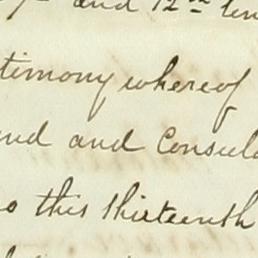 and 12th
timony whereof
and and Consula
o this thirteenth